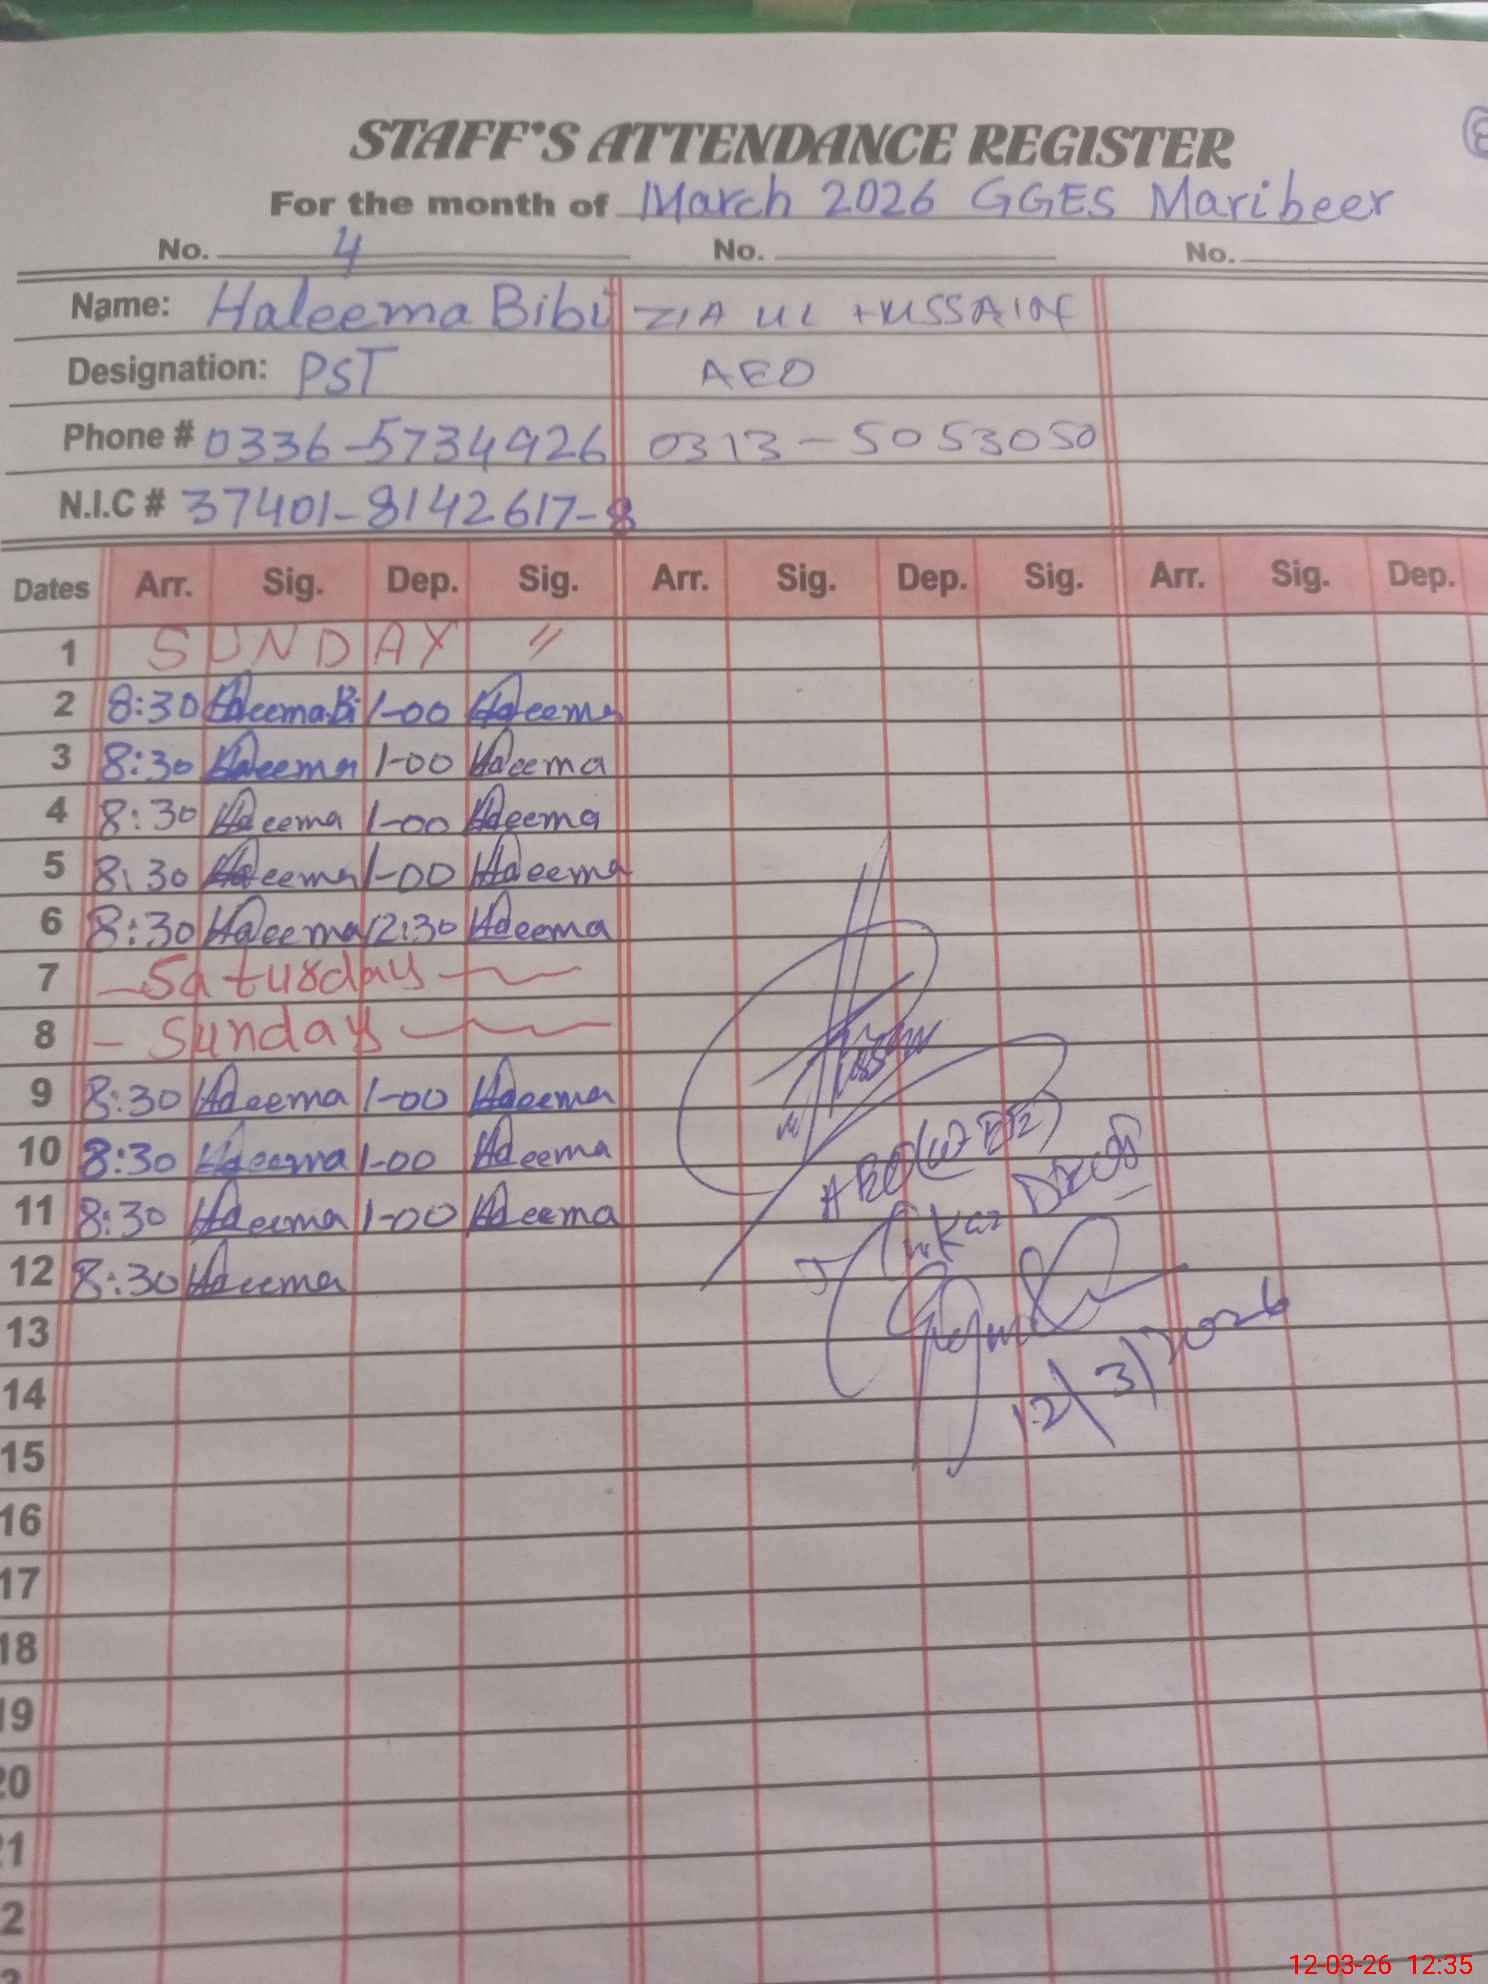 STAFF'S ATTENDANCE REGISTER
For the month of March 2026 GGES Maribeer
No. 4 No. No.
Name: Haleema Bibi ZIA UL HUSSAIN
Designation: PST AEO
Phone # 0336-5734926 0313-5053050
N.I.C # 37401-8142617-8
Dates Arr. Sig. Dep. Sig. Arr. Sig. Dep. Sig. Arr. Sig. Dep.
1 SUNDAY "
2 8:30 Haleema Bi 1-00 Haleema
3 8:30 Haleema 1-00 Haleema
4 8:30 Haleema 1-00 Haleema
5 8:30 Haleema 1-00 Haleema
6 8:30 Haleema 12:30 Haleema
7 - Saturday -
8 - Sunday -
9 8:30 Haleema 1-00 Haleema
10 8:30 Haleema 1-00 Haleema
11 8:30 Haleema 1-00 Haleema
12 8:30 Haleema
13
14
12/3/2026
15
16
17
18
19
20
21
2
12-03-26 12:35